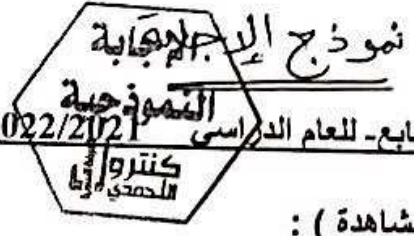 نموذج الإجابة
الإجابة
النموذجية
ابع - للعام الدراسي 022/2021
كنترول
شاهدة ) :